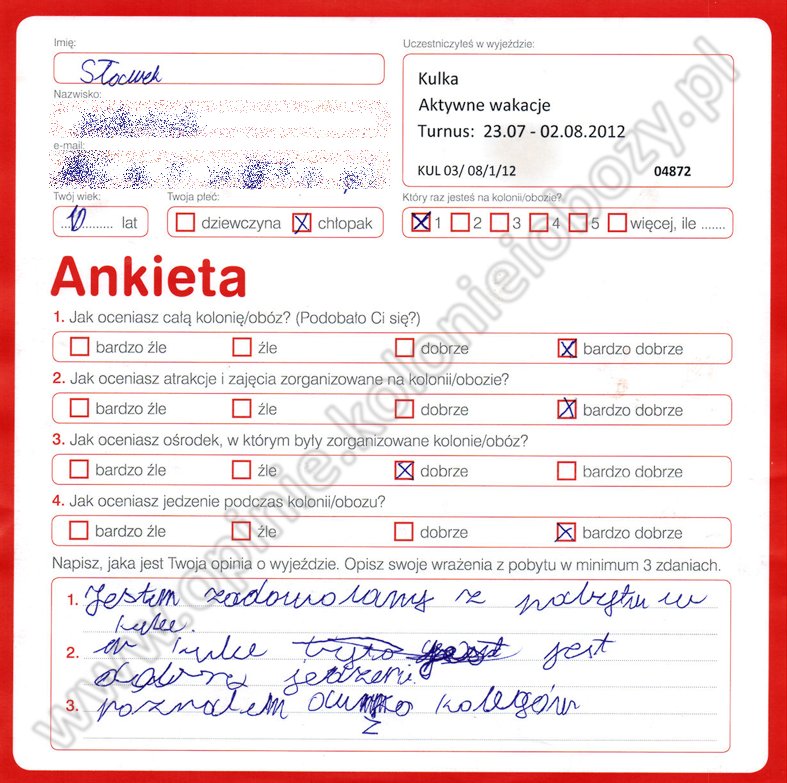 Imię:
Uczestniczyłeś w wyjeździe:
Sławek
Kulka
Aktywne wakacje
Turnus: 23.07 - 02.08.2012
KUL 03/ 08/1/12 04872
Nazwisko:
e-mail:
Twój wiek: Twoja płeć: Który raz jesteś na kolonii/obozie?
10 lat dziewczyna chłopak 1 2 3 4 5 więcej, ile .......
Ankieta
1. Jak oceniasz całą kolonię/obóz? (Podobało Ci się?)
bardzo źle źle dobrze bardzo dobrze
2. Jak oceniasz atrakcje i zajęcia zorganizowane na kolonii/obozie?
bardzo źle źle dobrze bardzo dobrze
3. Jak oceniasz ośrodek, w którym były zorganizowane kolonie/obóz?
bardzo źle źle dobrze bardzo dobrze
4. Jak oceniasz jedzenie podczas kolonii/obozu?
bardzo źle źle dobrze bardzo dobrze
Napisz, jaka jest Twoja opinia o wyjeździe. Opisz swoje wrażenia z pobytu w minimum 3 zdaniach.
1. Jestem zadowolany z pobytu w
kulce.
2. w kulce jest
dobre jedzenie
3. poznałem kolegów
www.opinie.kolonieiobozy.pl